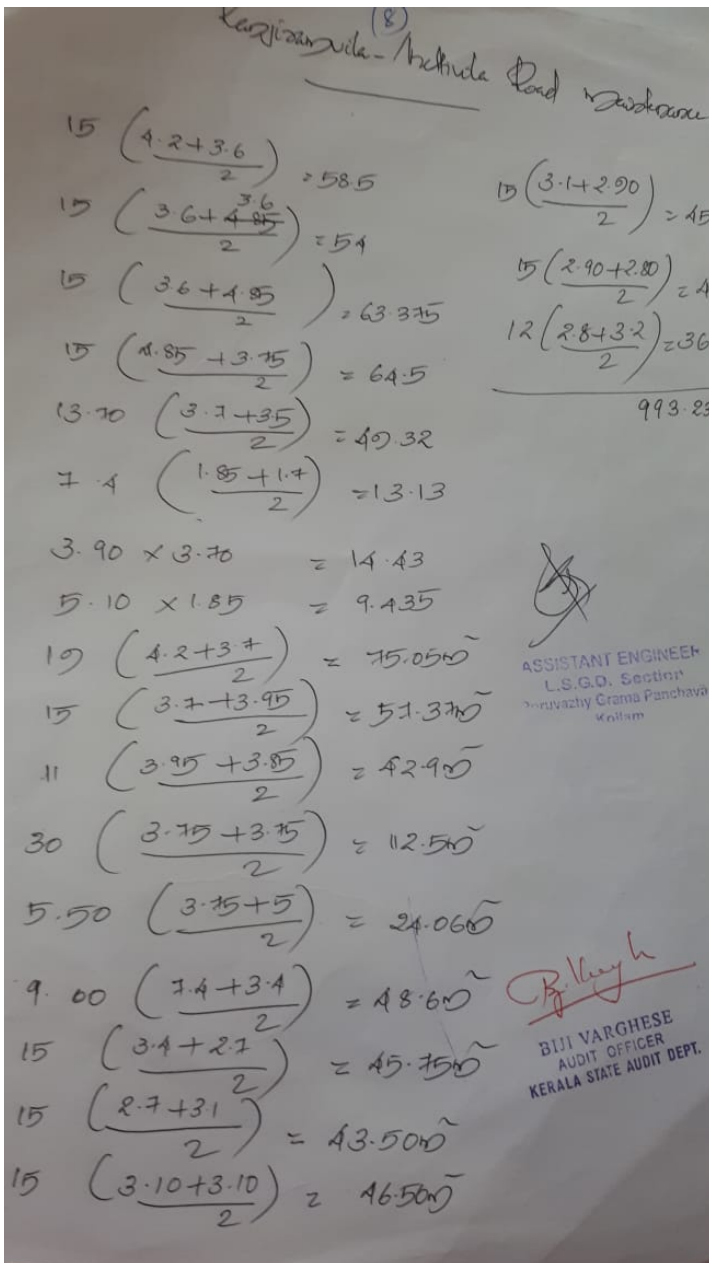 (8)
Road
15 (4.2+3.6/2) = 58.5
15 (3.6+3.6/2) = 54
15 (3.6+4.85/2) = 63.375
15 (4.85+3.75/2) = 64.5
13.70 (3.7+3.5/2) = 49.32
7.4 (1.85+1.7/2) = 13.13
3.90 × 3.70 = 14.43
5.10 × 1.85 = 9.435
19 (4.2+3.7/2) = 75.05
15 (3.7+3.95/2) = 57.37
11 (3.95+3.85/2) = 42.9
30 (3.75+3.75/2) = 112.5
5.50 (3.75+5/2) = 24.06
9.00 (7.4+3.4/2) = 48.6
15 (3.4+2.7/2) = 45.75
15 (2.7+3.1/2) = 43.50
15 (3.10+3.10/2) = 46.50
15 (3.1+2.90/2) = 45
15 (2.90+2.80/2) = 4
12 (2.8+3.2/2) = 36
993.23
ASSISTANT ENGINEER
L.S.G.D. Section
Grama Panchaya
Kollam
BIJI VARGHESE
AUDIT OFFICER
KERALA STATE AUDIT DEPT.